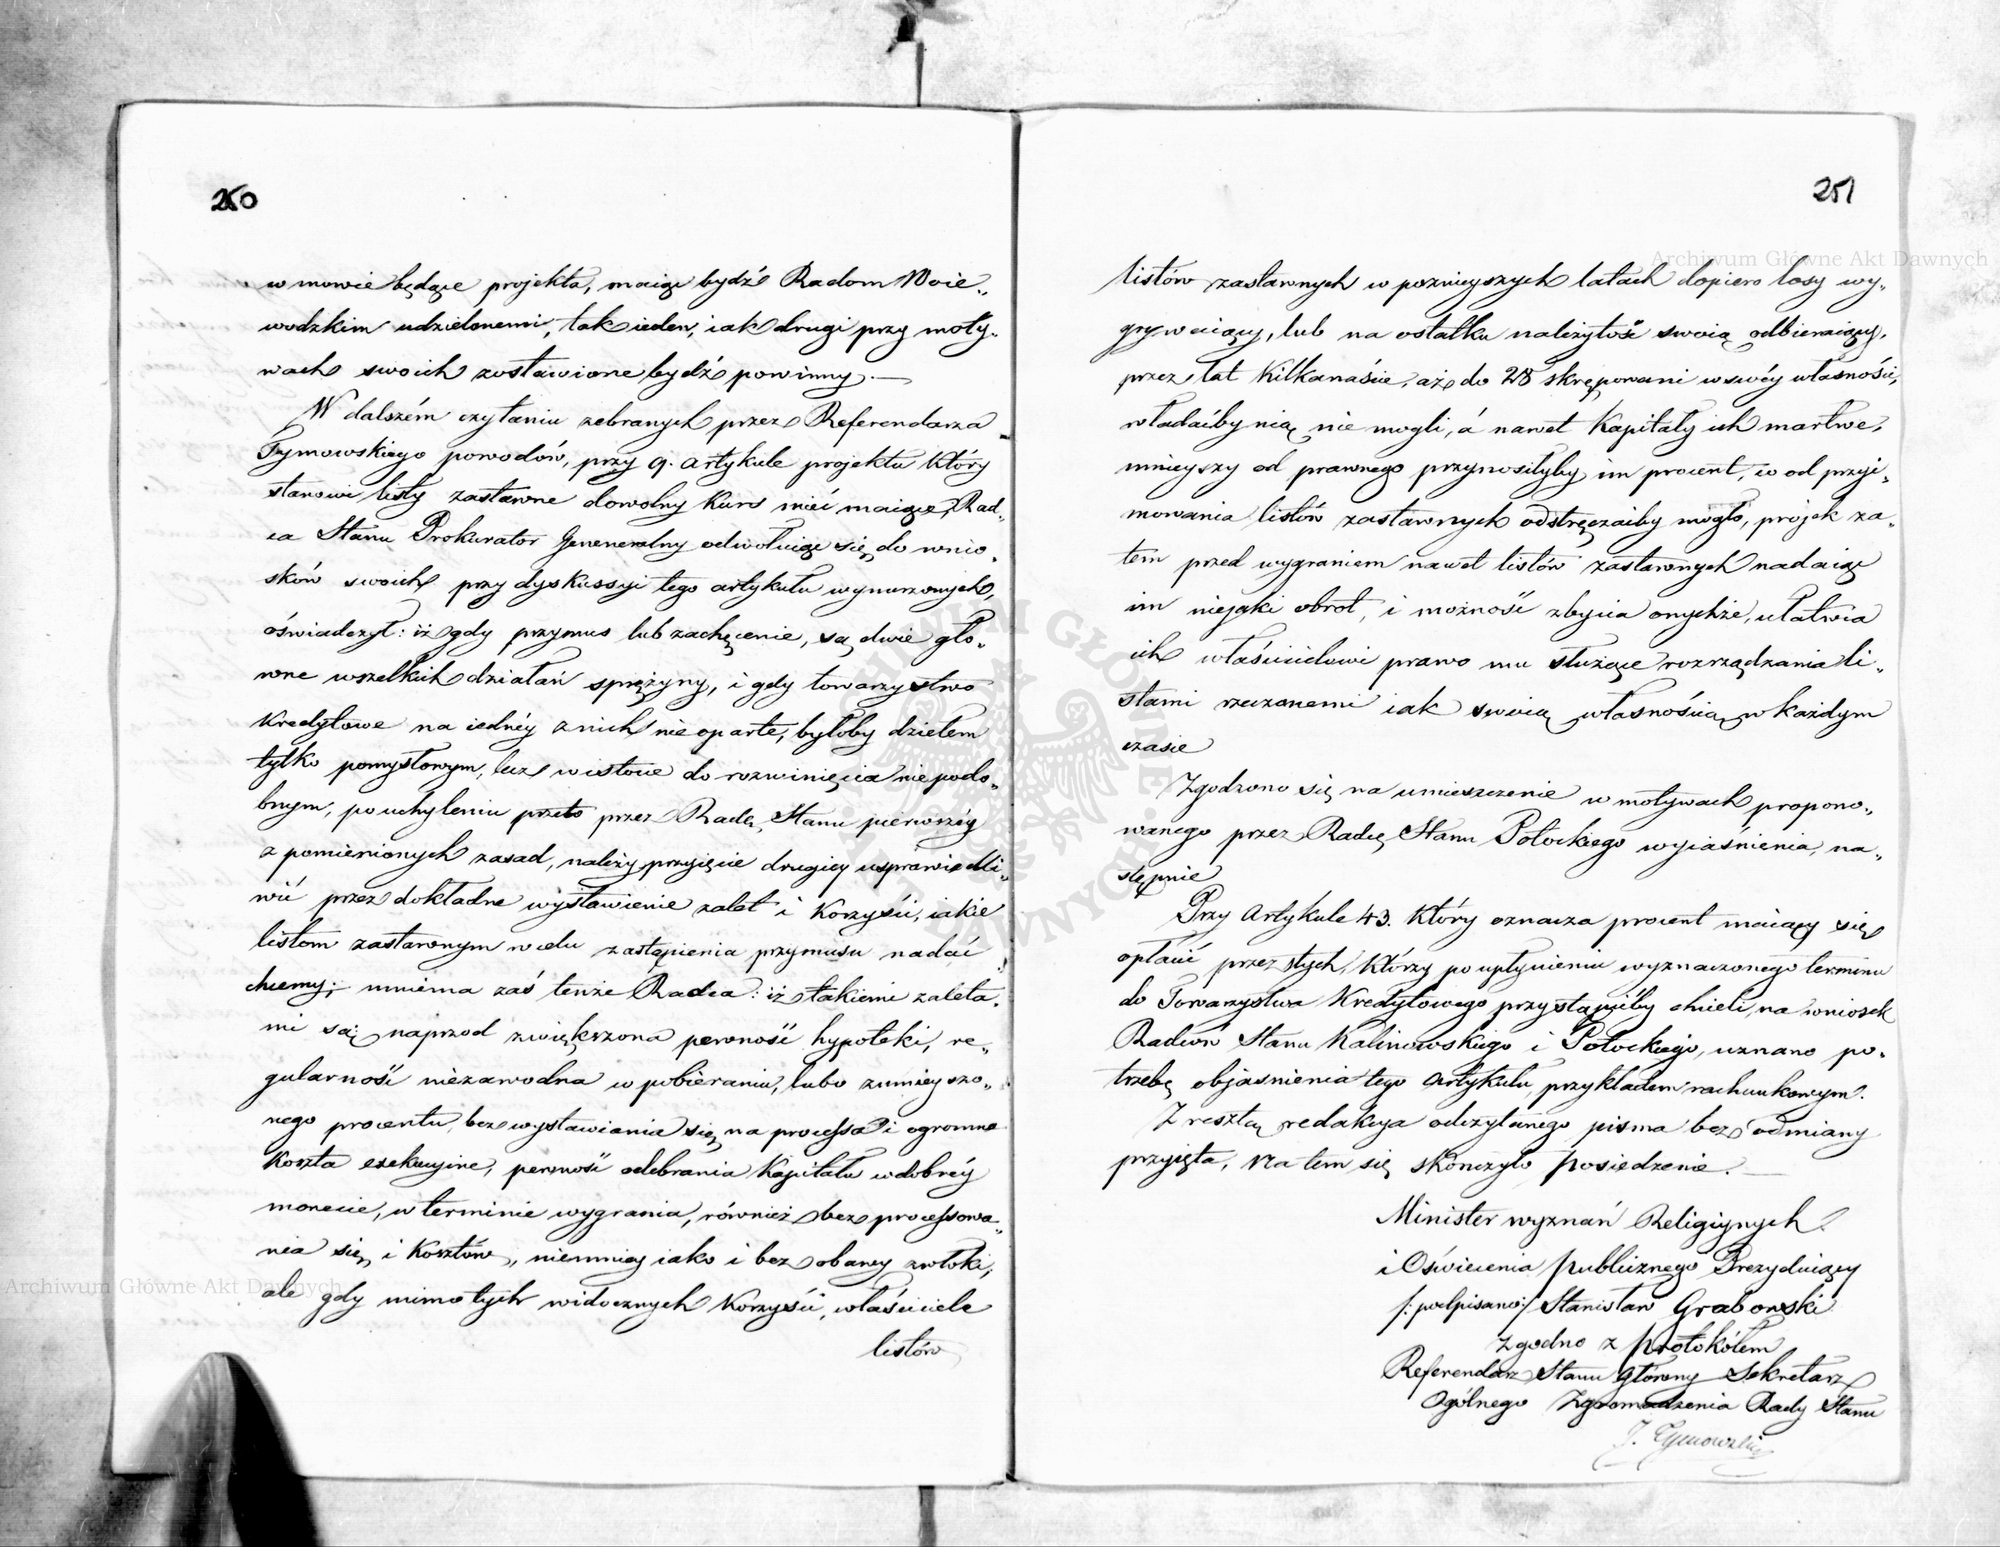 250
w mowie będące projekta, maiąc bydź Radom Woie„
wodzkim udzielonemi, tak ieden, iak drugi przy moty„
wach swoich zostawione bydź powinny. —
W dalszém czytaniu zebranych przez Referendarza
Tymowskiego powodów, przy 9. artykule projektu który
stanowi listy zastawne dowolny kurs mieć maiące, Rad„
ca Stanu Prokurator Generalny odwołuiąc się do wnio„
sków swoich przy dyskussyi tego artykułu wynurzonych,
oświadczył: iż gdy przymus lub zachęcenie, są dwie głó„
wne wszelkich działań sprężyny, i gdy towarzystwo
Kredytowe na iednéy z nich nie oparte, byłoby dziełem
tylko pomysłowym, lecz w istocie do rozwinięcia niepodo„
bnym, po uchyleniu przeto przez Radę Stanu pierwszéy
z pomienionych zasad, należy przyięcie drugiey usprawiedli„
wić przez dokładne wystawienie zalet i korzyści, iakie
listom zastawnym w celu zastąpienia przymusu nadać
chcemy; mniema zaś tenże Radca: iż takiemi zaleta„
mi są: naprzod zwiększona pewność hypoteki, re„
gularność niezawodna w pobieraniu, lubo zmnieyszo„
nego procentu, bez wystawiania się na processa i ogromne
Koszta exekucyine, pewność odebrania Kapitału w dobréy
monecie, w terminie wygrania, również bez processowa„
nia się i kosztów, niemniey iako i bez obawy zwłoki,
ale gdy mimo tych widocznych korzyści, właściciele
listów
251
listów zastawnych w poznieyszych latach dopiero losy wy„
grywaiący, lub na ostatku należytość swoią odbieraiący,
przez lat kilkanaście, aż do 28 skrępowani w swéy własności,
władaćby nią nie mogli, á nawet Kapitały ich martwe,
mnieyszy od prawnego przynosiłyby im procent, co od przyi„
mowania listów zastawnych odstręczaćby mogło, projek za„
tem przed wygraniem nawet listów zastawnych nadaiąc
im niejaki obrot, i możność zbycia onychże, ułatwia
ich właścicielowi prawo mu służące rozrządzania li„
stami rzeczonemi iak swoią własnością w każdym
czasie
Zgodzono się na umieszczenie w motywach propono„
wanego przez Radcę Stanu Potockiego wyiaśnienia, na„
stępnie
Przy Artykule 43. Który oznacza procent maiący się
opłacić przez tych, którzy po upłynieniu wyznaczonego terminu
do Towarzystwa Kredytowego przystąpićby chcieli, na wniosek
Radców Stanu Kalinowskiego i Potockiego, uznano po„
trzebę objaśnienia tego Artykułu przykładem rachunkowym.
Z resztą redakcya odczytanego pisma bez odmiany
przyięta, Na tem się skończyło posiedzenie. —
Minister wyznań Religiynych
i Oświecenia publicznego Prezyduiący
/:podpisano:/ Stanisław Grabowski
Zgodno z Protokółem
Referendarz Stanu Główny Sekretarz
Ogólnego Zgromadzenia Rady Stanu
J. Tymowski
Archiwum Główne Akt Dawnych
Archiwum Główne Akt Dawnych
ARCHIWUM GŁÓWNE AKT DAWNYCH